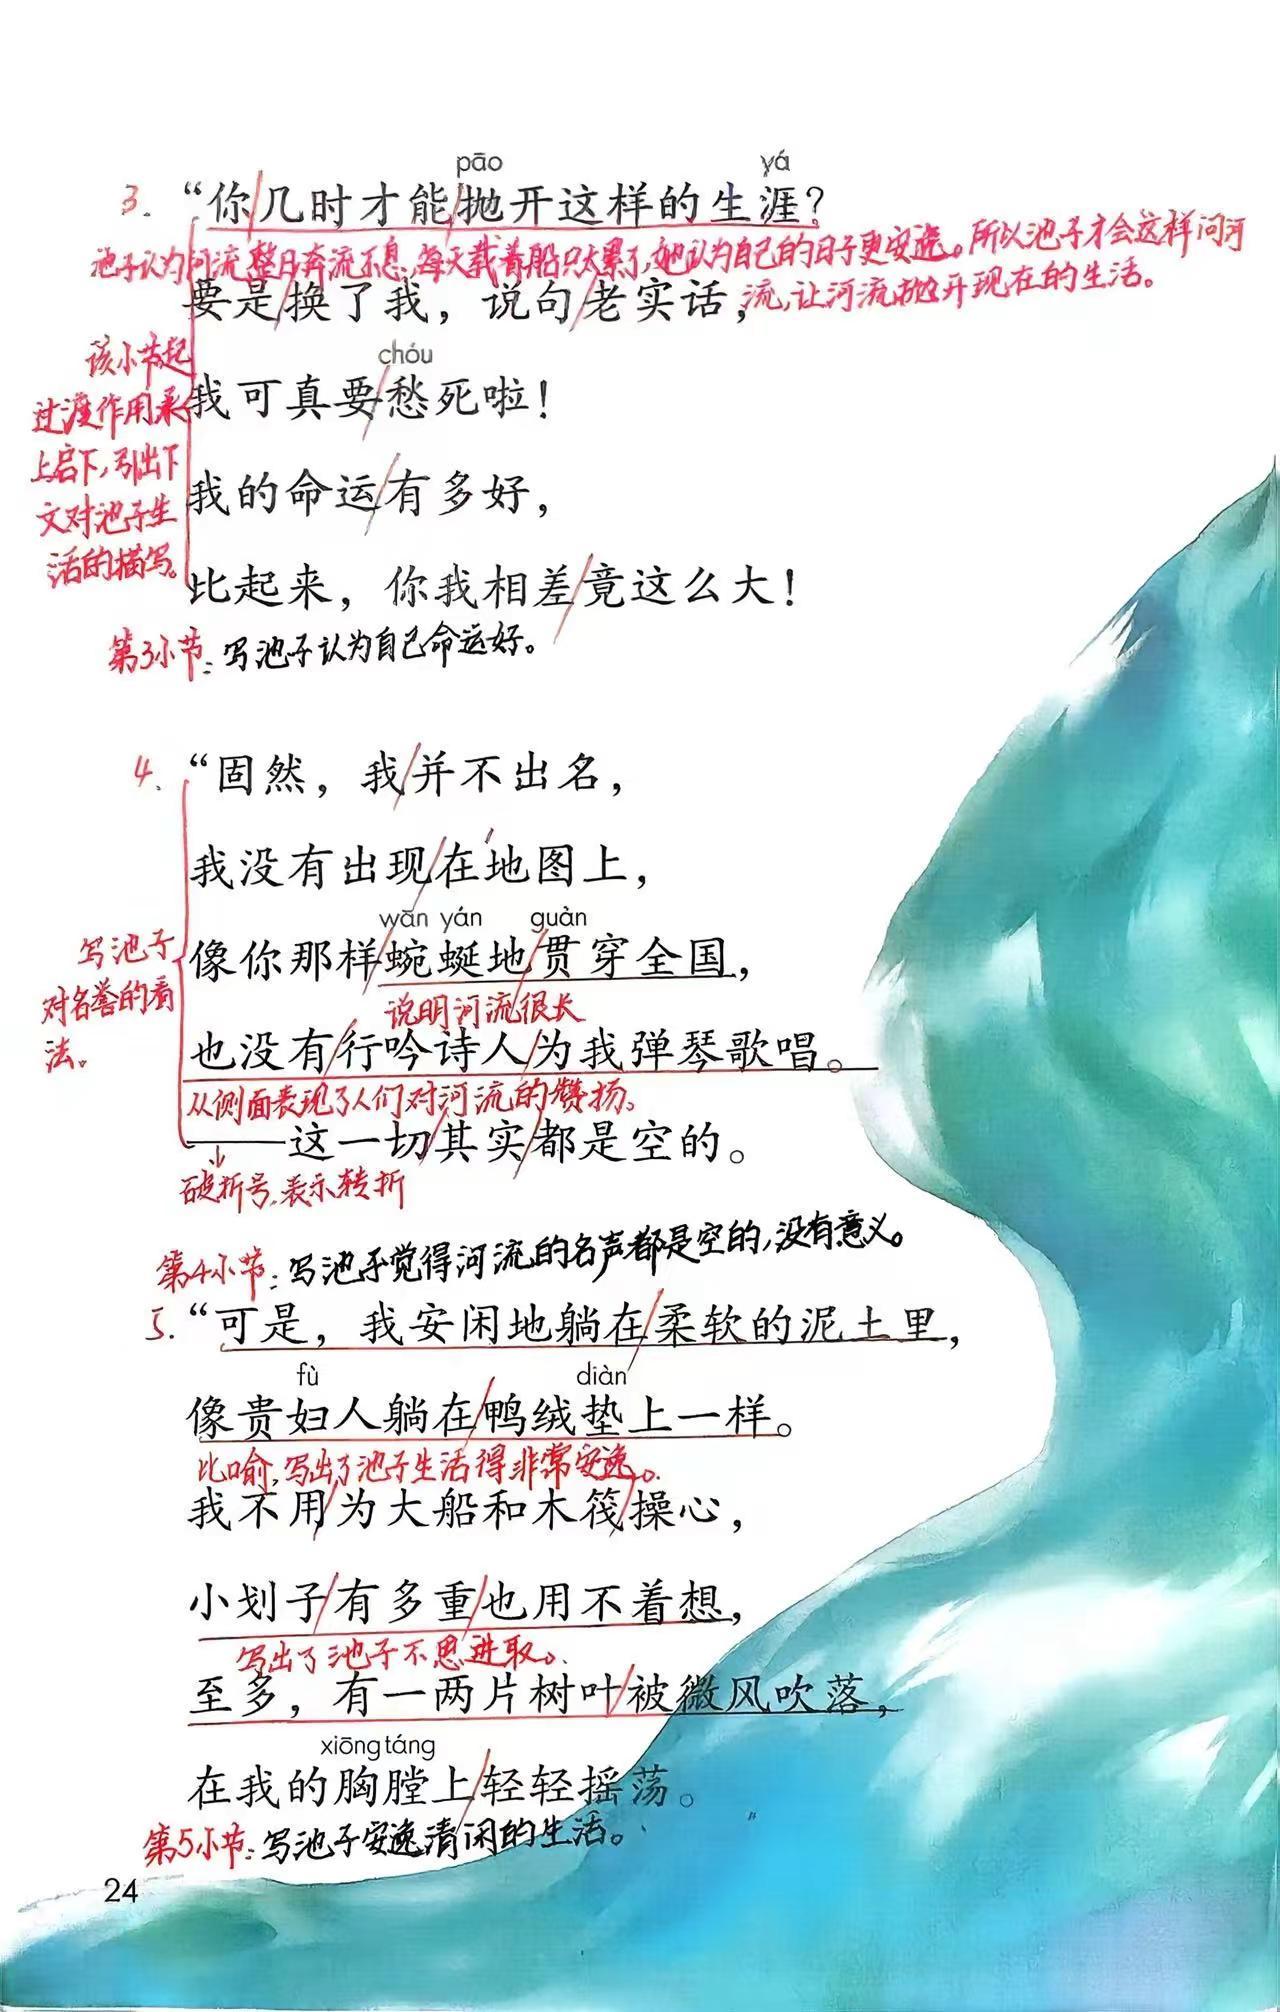 pāo yá
3. “你/几时才能/抛开这样的生涯？
池子认为河流整日奔流不息，每天载着船只太累了，她认为自己的日子更安逸。所以池子才会这样问河
流，让河流抛开现在的生活。
要是/换了我，说句/老实话，
该小节起
过渡作用承
上启下，引出下
文对池子生
活的描写。
chóu
我可真要/愁死啦！
我的命运/有多好，
比起来，你我相差/竟这么大！
第3小节：写池子认为自己命运好。
4. “固然，我/并不出名，
我没有出现/在地图上，
wān yán guàn
像你那样/蜿蜒地/贯穿全国，
写池子
对名誉的看
法。
说明河流很长
也没有/行吟诗人/为我弹琴歌唱。
从侧面表现了人们对河流的赞扬。
——这一切/其实/都是空的。
破折号，表示转折
第4小节：写池子觉得河流的名声都是空的，没有意义。
5. “可是，我安闲地躺在/柔软的泥土里，
fù diàn
像贵妇人躺在/鸭绒垫上一样。
比喻，写出了池子生活得非常安逸。
我不用/为大船和木筏/操心，
小划子/有多重/也用不着想，
写出了池子不思进取。
至多，有一两片树叶/被微风吹落，
xiōng táng
在我的胸膛上/轻轻摇荡。
第5小节：写池子安逸清闲的生活。
24